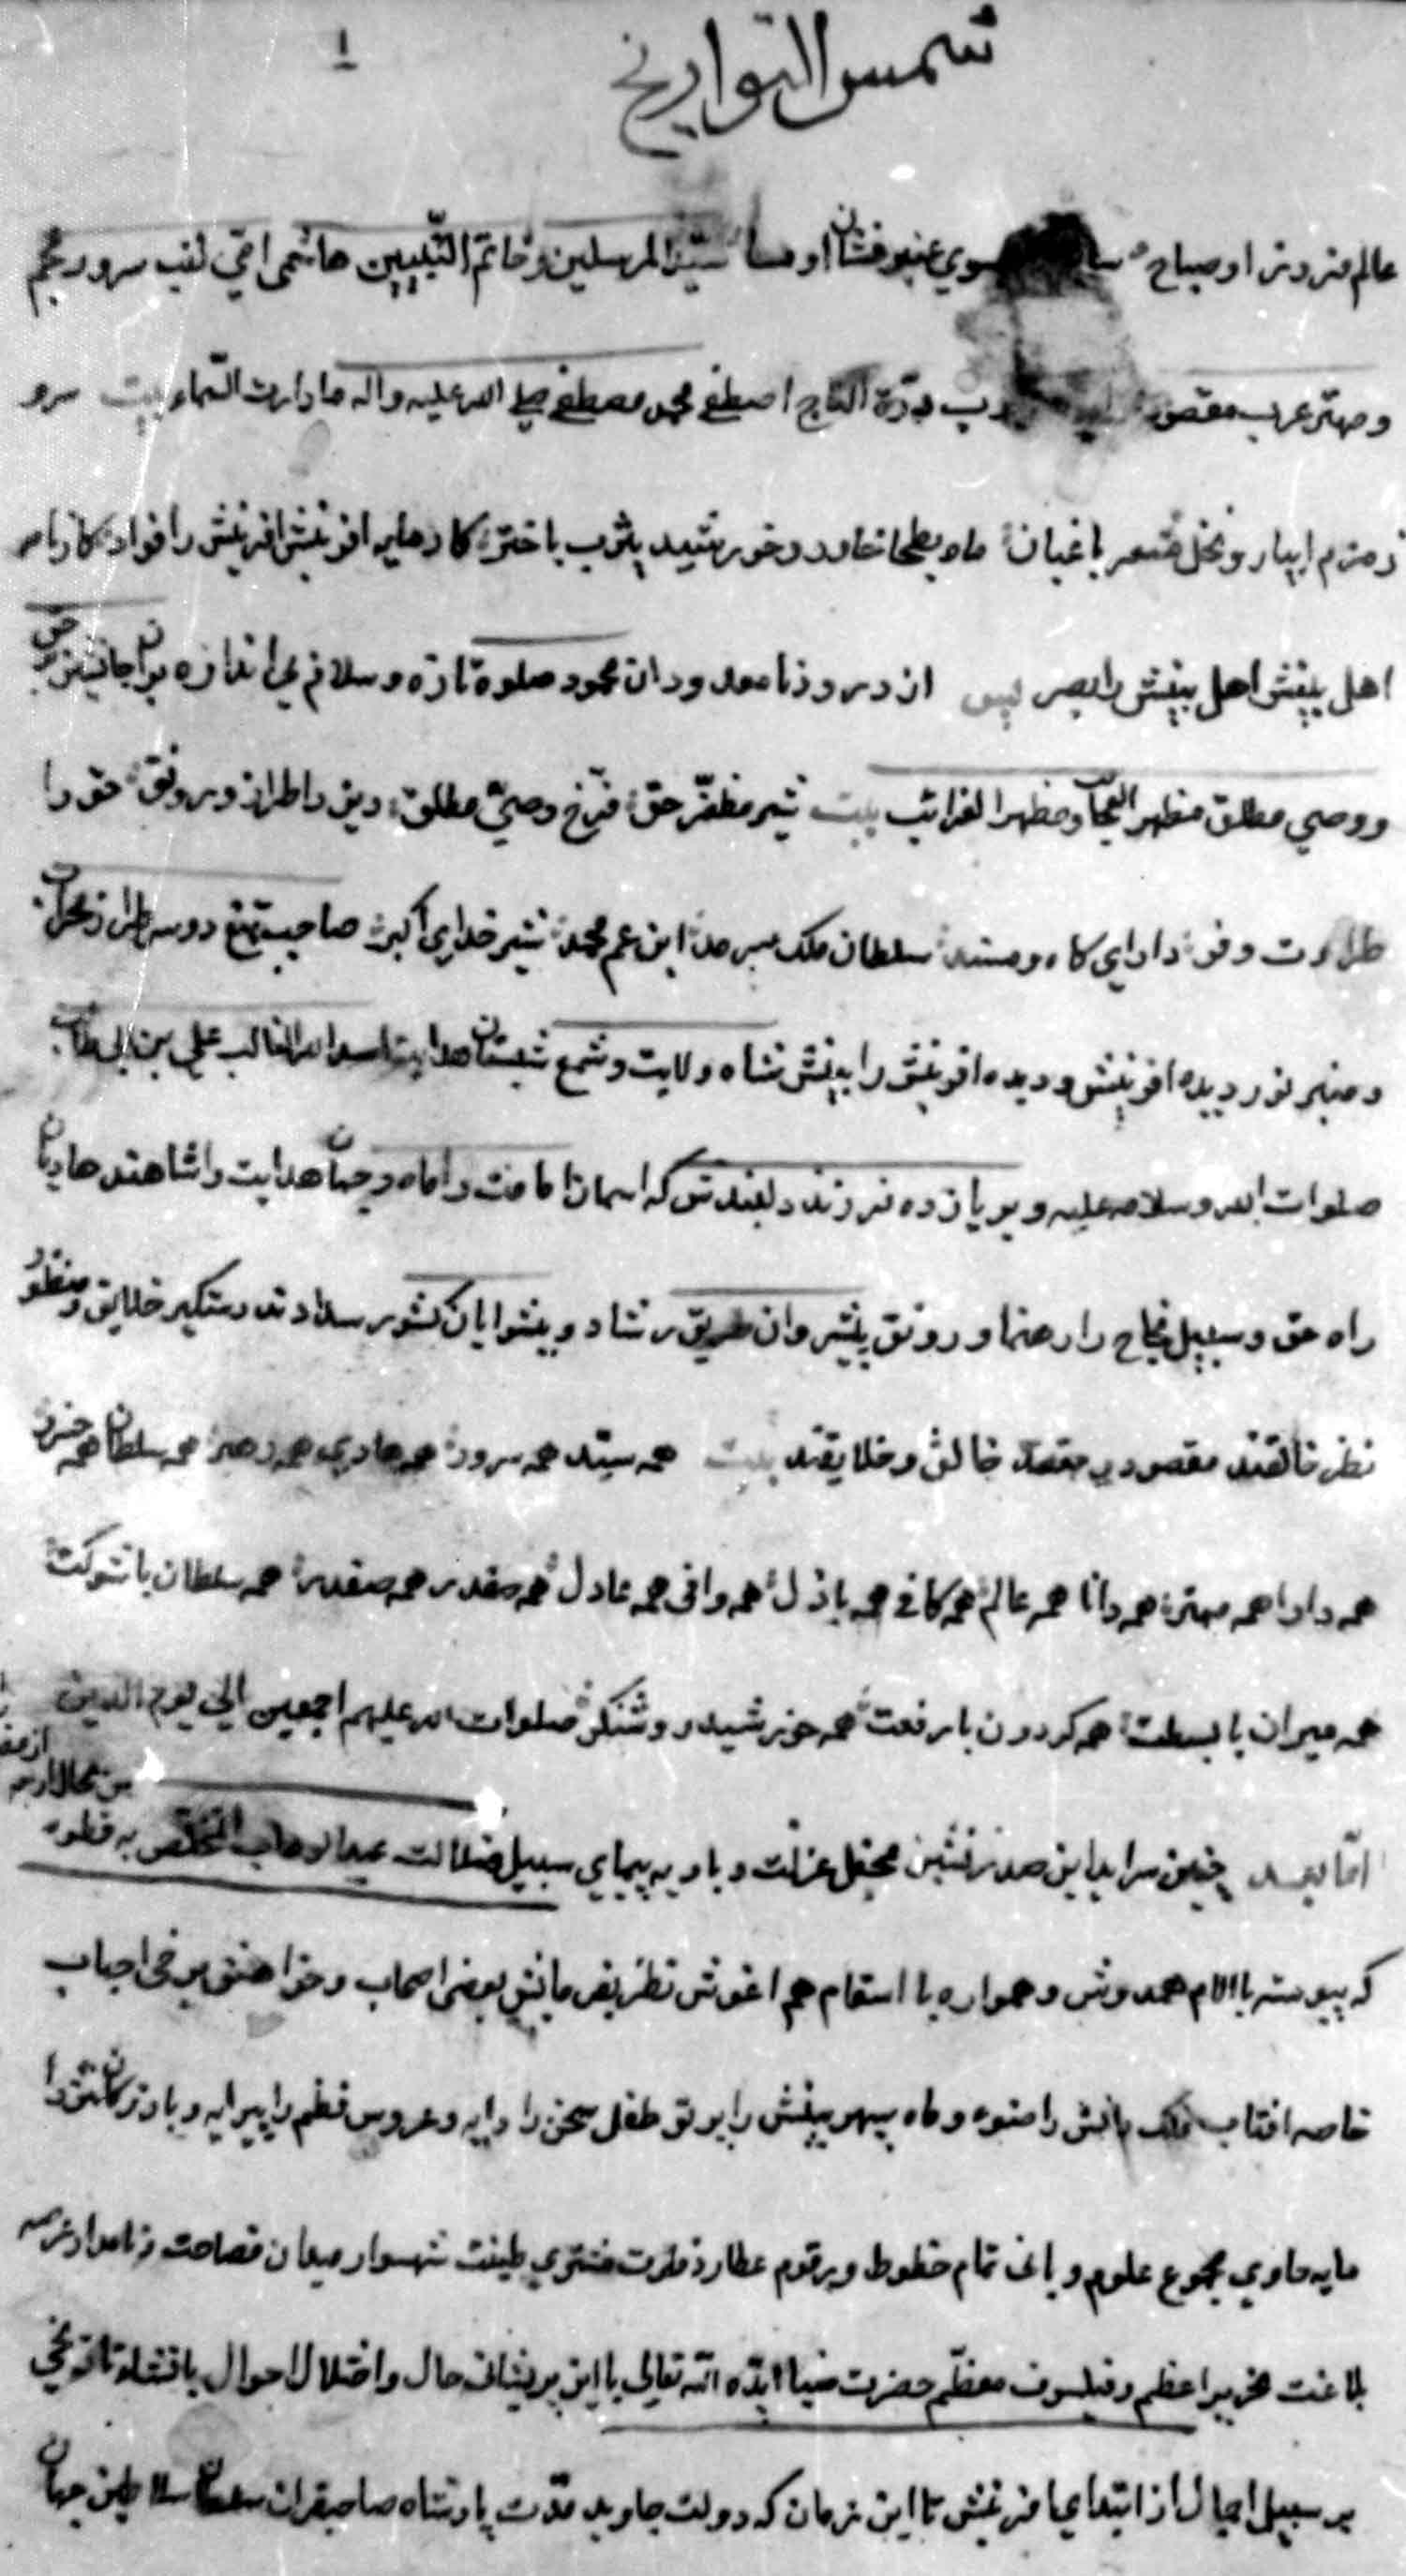 ۱
شمس التواریخ
عالم فروز او صباح سوی عنبر فشان او مسا سید المرسلین و خاتم النبیین هاشمی امی لقب سرور عجم
و مهتر عرب مقصود درّة التاج اصطفی محمد مصطفی صلی الله علیه واله مادارت السماء بیت سرو
زمزم ابیار و نخل مشعر باغبان ماه بطحا خاور و خورشید یثرب باختر کارهای افرینش افرینش را
اهل بینش اهل بینش را بصر پس از درود نامعدود ان محمود صلوة تازه و سلام بی اندازه بران جانشین بر حق
و وصی مطلق مظهر العجایب و مظهر الغرائب بیت شیر مظفّر حق فرّخ وصیّ مطلق دین را طراز و رونق حق را
طراوت و فر دارای کاه و مسند سلطان ملک سرمد ابن عم محمد شیر خدای اکبر صاحب تیغ دوسر
و منبر نور دیده افرینش و دیده افرینش را بینش شاه ولایت و شمع شبستان هدایت اسد الله الغالب علی بن ابی طالب
صلوات الله و سلامه علیه و بر یازده فرزند دلبندش که اسمان امامت را ماه و جهان هدایت را شاهند هادیان
راه حق و سبیل نجاح را رهنما و رونق پیشروان طریق رشاد و پیشوایان کشور سدادند دستکیر خلایق و منظور
نظر خالقند مقصود بی مقصد خالق و خلایقند بیت همه سیّد همه سرور همه هادی همه رهبر همه سلطان همه خسرو
همه دارا همه مهتر همه دانا همه عالم همه کافی همه باذل همه وافی همه عادل همه صفدر همه سلطان باشوکت
همه میران با بسطت همه کردون با رفعت همه خورشید روشنکر صلوات الله علیهم اجمعین الی یوم الدین
امّا بعد چنین سراید این صدرنشین محفل عزلت و بادیه پیمای سبیل ضلالت عبدالوهاب المتخلّص به قطره
که پیوسته با الام همدوش و همواره با اسقام هم اغوش نظر بفرمایش بعضی اصحاب و خواهش برخی احباب
خاصه افتاب فلک دانش را ضوء و ماه سپهر بینش را پرتو طفل سخن را دایه و عروس نظم را پیرایه و بازرکان نثر را
مایه حاوی مجموع علوم و بانی تمام خطوط و رقوم عطارد فطرت مشتری طینت شهسوار میدان فصاحت و نامدار عرصه
بلاغت نحریر اعظم و فیلسوف معظّم حضرت ضیا ایّده الله تعالی با این پریشانی حال و اختلال احوال بانشاء تاریخی
بر سبیل اجمال از ابتدای افرینش تا این زمان که دولت جاوید مدّت پادشاه صاحبقران سلطان سلاطین جهان